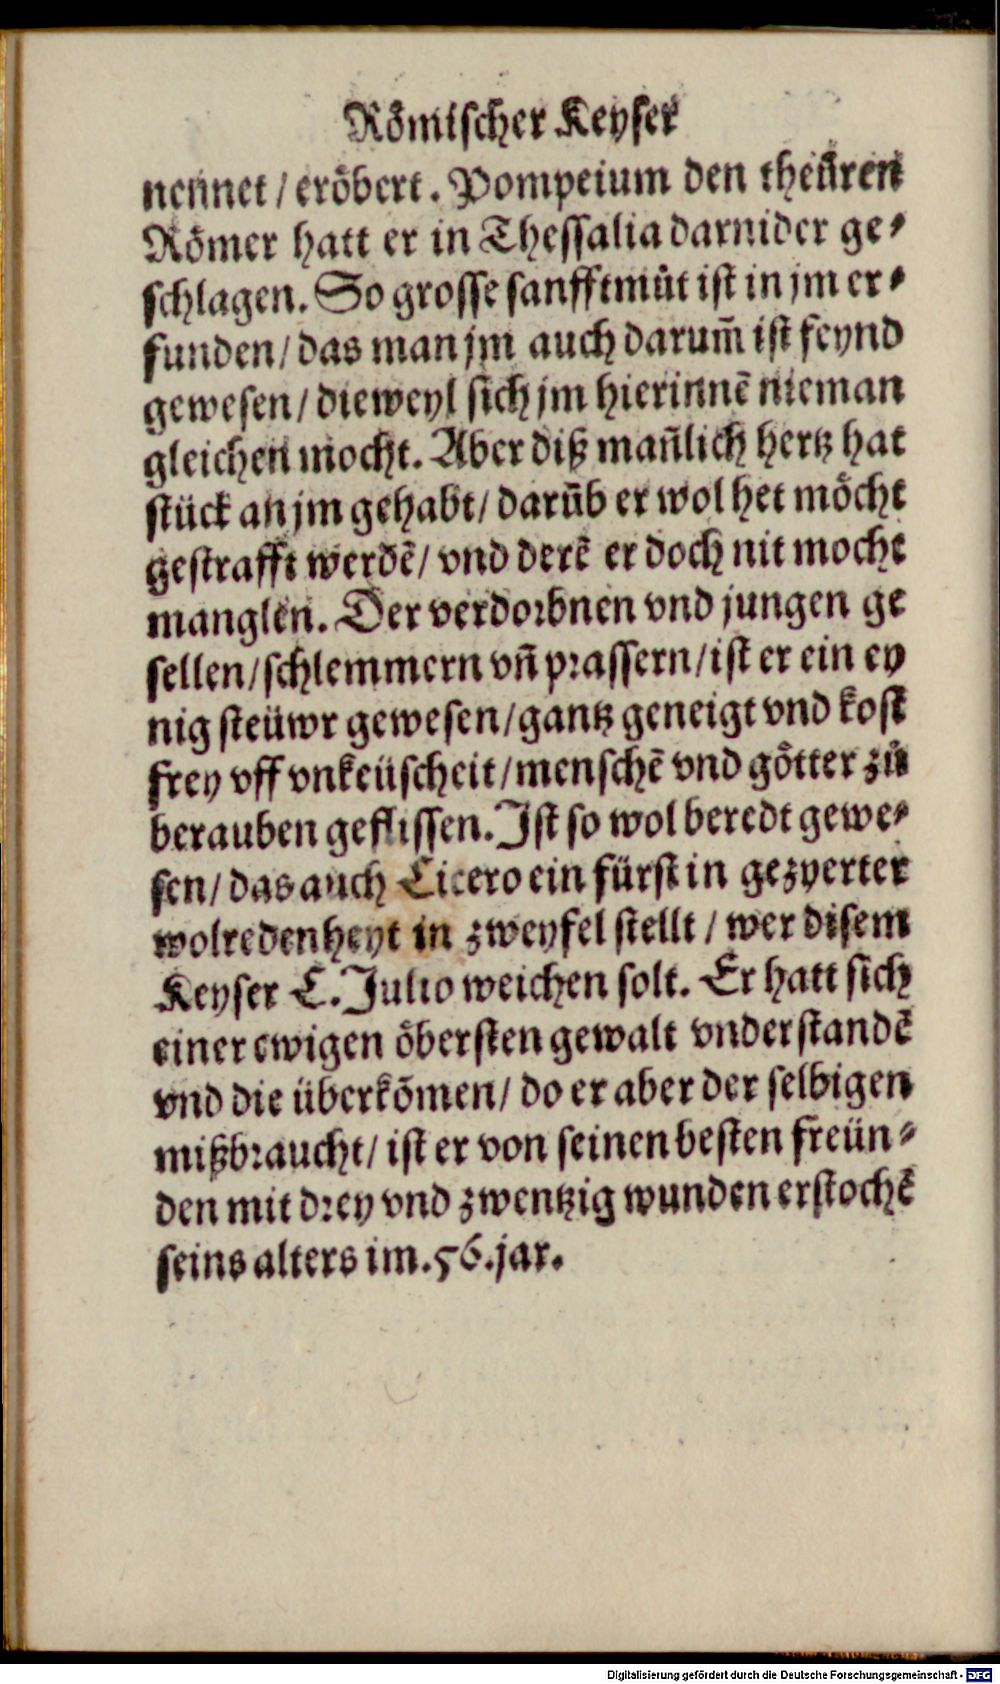 Römischer Keyser
nennet / eröbert. Pompeium den theüren
Römer hatt er in Thessalia darnider ge⸗
schlagen. So grosse sanfftmůt ist in jm er⸗
funden / das man jm auch darum̄ ist feynd
gewesen / dieweyl sich jm hierinnē nieman
gleichen mocht. Aber diß man̄lich hertz hat
stück an jm gehabt / darūb er wol het möcht
gestrafft werdē / vnd derē er doch nit mocht
manglen. Der verdorbnen vnd jungen ge
sellen / schlemmern vn̄ prassern / ist er ein ey
nig steüwr gewesen / gantz geneigt vnd kost
frey vff vnkeüscheit / menschē vnd götter zů
berauben geflissen. Ist so wol beredt gewe⸗
sen / das auch Cicero ein fürst in gezyerter
wolredenheyt in zweyfel stellt / wer disem
Keyser C. Julio weichen solt. Er hatt sich
einer ewigen öbersten gewalt vnderstandē
vnd die überkōmen / do er aber der selbigen
mißbraucht / ist er von seinen besten freün⸗
den mit drey vnd zwentzig wunden erstochē
seins alters im .56. jar.
Digitalisierung gefördert durch die Deutsche Forschungsgemeinschaft - DFG